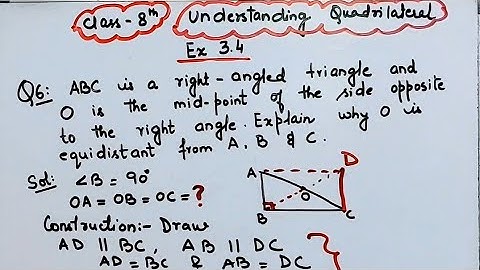 Class-8th Understanding Quadrilateral
Ex 3.4
Q6: ABC is a right-angled triangle and
O is the mid-point of the side opposite
to the right angle. Explain why O is
equidistant from A, B & C.
Sol: ∠B = 90°
OA = OB = OC = ?
Construction:- Draw
AD || BC, AB || DC
AD = BC & AB = DC
A D
O
B C